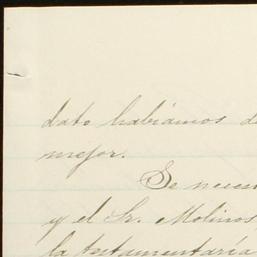 dato habíamos d
mejor.
Se necesi
y el Sr. Molinos,
la testamentaría